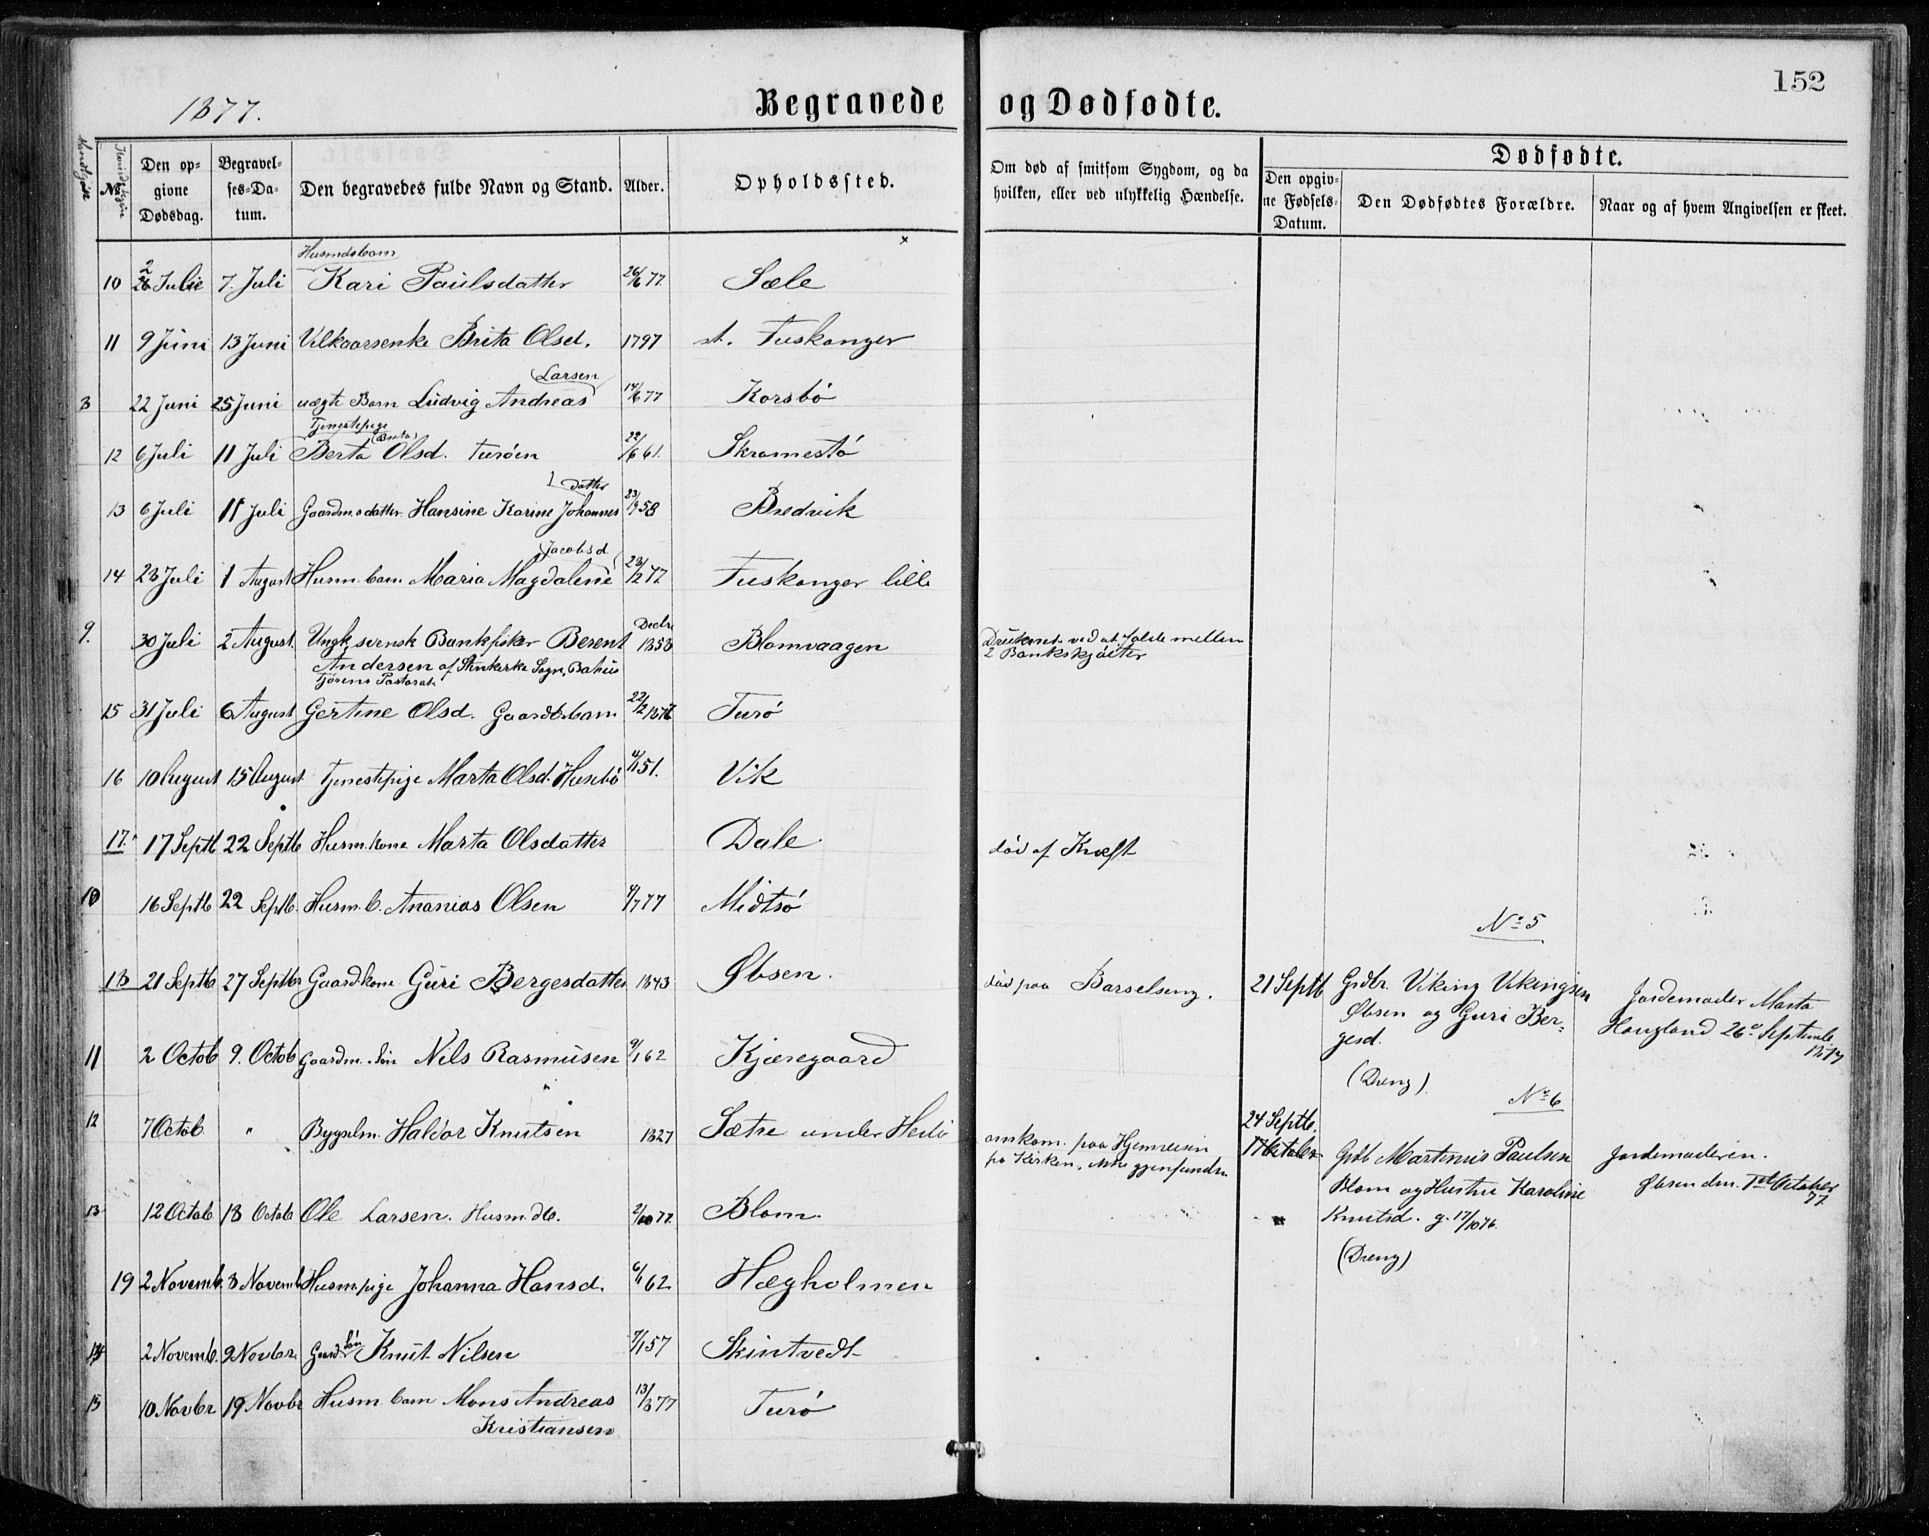 152
1877.
Begravede og Dødfødte.
Mandkjøn
Nr.
Den opgivne Dødsdag.
Begravelses-Datum.
Den begravedes fulde Navn og Stand.
Alder.
Opholdssted.
Om død af smitsom Sygdom, og da hvilken, eller ved ulykkelig Hændelse.
Dødfødte.
Den opgivne Fødsels-Datum.
Den Dødfødtes Forældre.
Naar og af hvem Angivelsen er skeet.
Husmdsbarn
10 2 Julie 7. Juli Kari Paulsdatter 26/6 77. Sæle
11 9 Juni 13 Juni Vilkaarsenke Brita Olsd. 1797 st. Tuskanger
Larsen
8 22 Juni 25 Juni uægte Barn Ludvig Andreas 14/6 77 Korsbö
Tjenestepige
(Brita)
12 6 Juli 11 Juli Berta Olsd. Turöen 22/6 61. Skramestö
datter
13 6 Juli 11 Juli Gaardm.sdatter. Hansine Karine Johannes 23/9 58 Bredvik
Jacobsd
14 28 Juli 1 August Husm. barn Maria Magdalene 23/2 77 Tuskanger lille
9. 30 Juli 2 August. Ungk. svensk Bankfisker Berent Decbr 1858 Blomvaagen Druknet ved at falde mellem
Andersen af Stenkerke Sogn, Bahus 2 Bankskjöiter
Tjörens Pastorat.
15 31 Juli 6 August Gertine Olsd. Gaardbr.barn 22/2 1876 Turö
16 10 August 15 August Tjenestepige Marta Olsd. Husebö 4/1 51. Vik
17. 17 Septb 22 Septb Husm.kone Marta Olsdatter Dale död af Kræft
10 16 Septb 22 Septb. Husm. b. Ananias Olsen 9/7 77 Midtsö
No 5
18 21 Septb 27 Septbr Gaardkone Guri Bergesdatter 1843 Øbsen. död paa Barselseng. 21 Septb Grdbr. Viking Vikingsen Jordemoder Marta
Øbsen og Guri Ber- Haugland 26de Septembr
gesd. 1877
(Dreng)
11 2 Octob 9. Octob Gaardm. sön Nils Rasmusen 9/1 62 Kjæregaard
No 6
12 7 Octob. " Bygselm. Haldor Knutsen 1827 Sætre under Herlö omkom. paa Hjemreisen
fra Kirken, ikke gjenfunden
24 Septb.
17 October Grdb Martinus Paulsen Jordemoderen.
Blom og Hustru Karoline Øbsen den 1ste October
Knutsd. g. 17/10 76. 77
(Dreng)
13 12 Octob 18 Octob Ole Larsen. Husm.db. 2/10 77. Blom.
19 2 Novemb. 8 Novemb Husm.pige Johanna Hansd. 6/1 62 Hægholmen
14 2 Novemb. 9 Novbr. Gaard sön Knut Nilsen 7/1 57 Skintvedt
15 10 Novbr 19 Novbr Husm barn Mons Andreas 13/8 77 Turö
Kristiansen